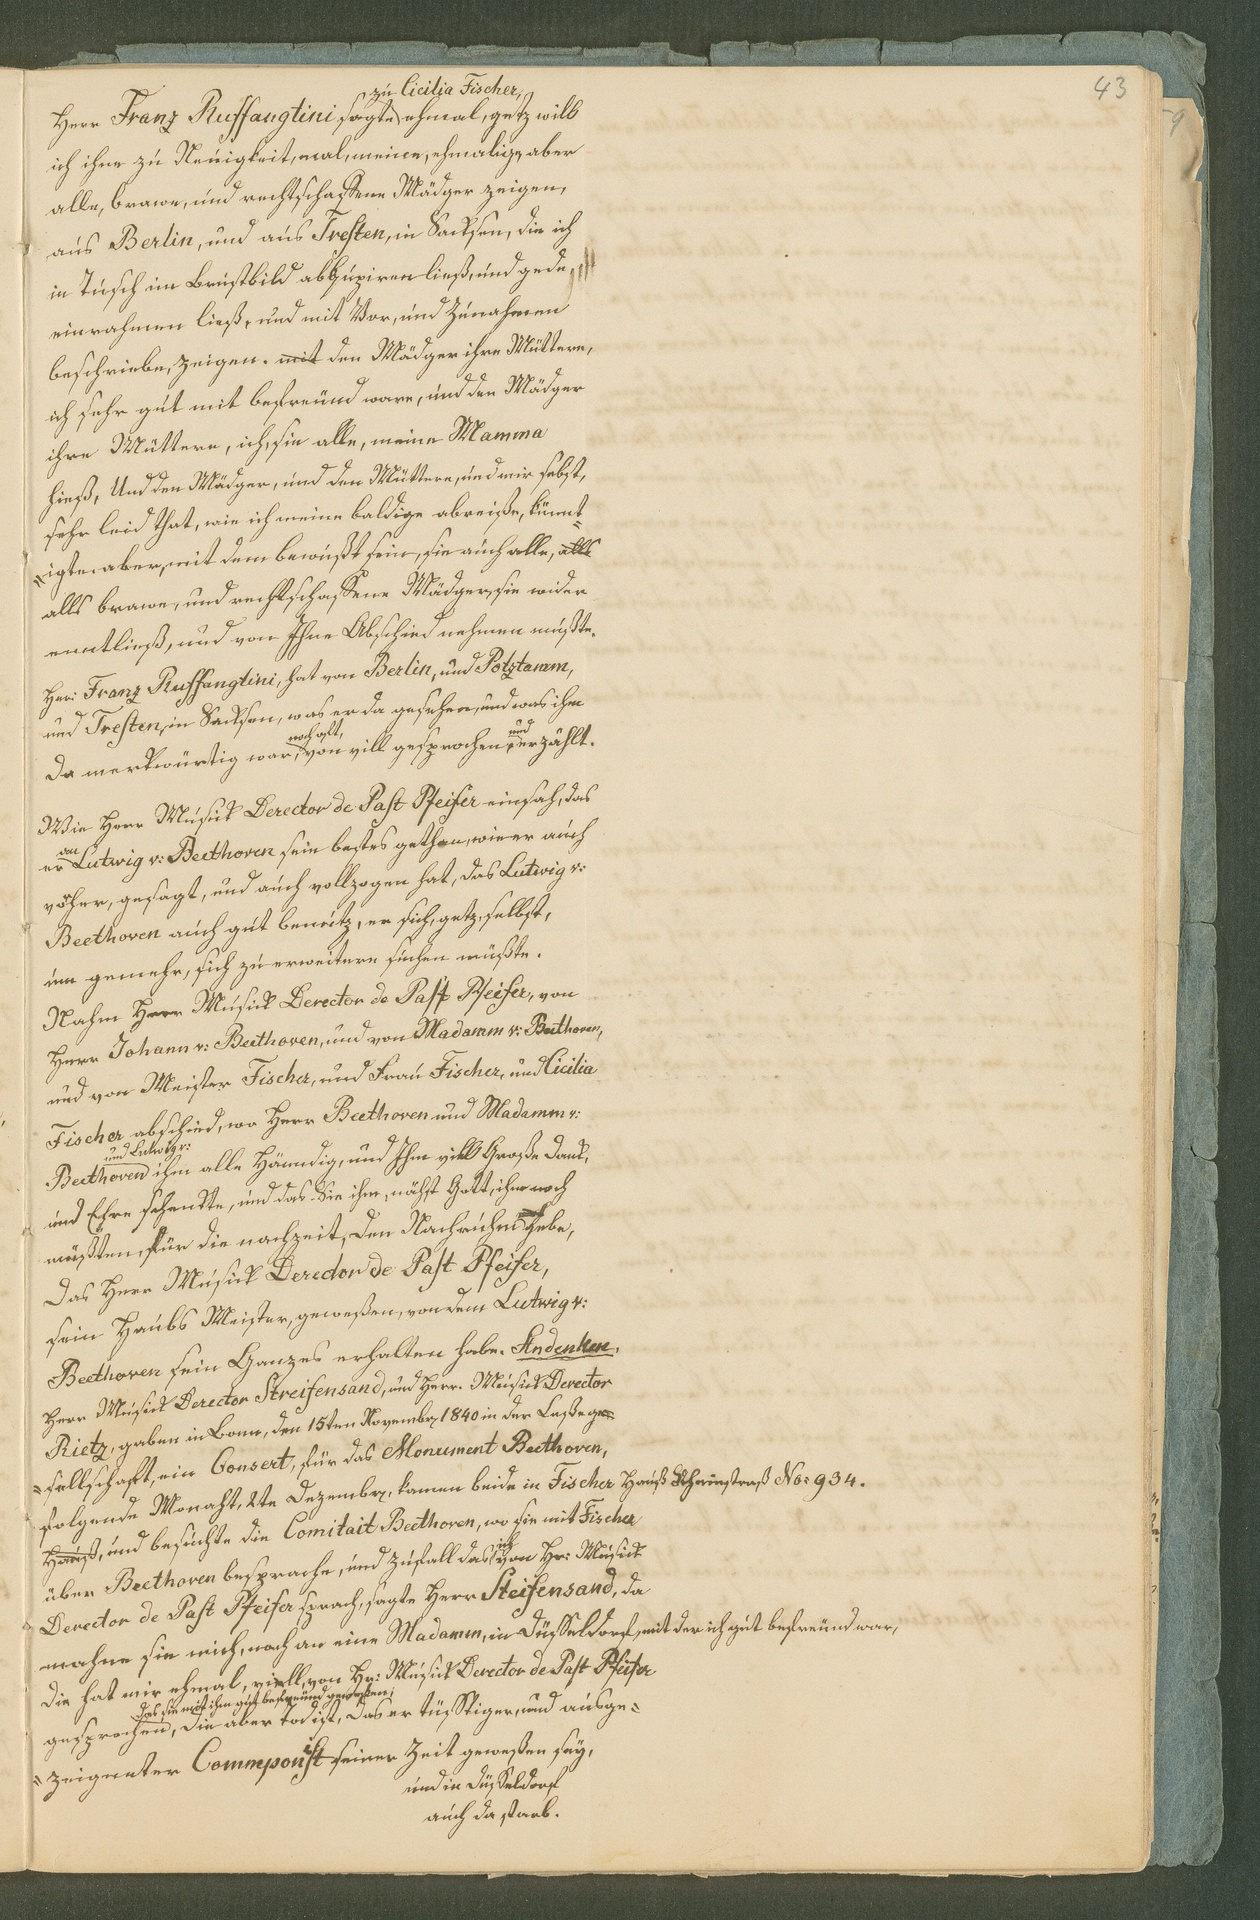 43
zu Cicilia Fischer,
Herr Franz Ruffangtini sagte ehmal, getz will
ich ihne zu Neuigkeit, mal, meine, ehmalige, aber
alle, brawe, und rechtschaffene Mädger zeigen,
aus Berlin, und aus Tresten, in Sacksen, die ich
in Tusch im Brustbild abkupiren ließ, und gede
einrahmen ließ, und mit Vor, und Zunahmen
beschriebe, zeigen. mit den Mädger ihre Müttere,
ich sehr gut mit befreünd ware, und den Mädger
ihre Müttere, ich, sie alle, meine Mamma
hieß, Und den Mädger, und den Müttere, und mir sebst,
sehr leid that, wie ich meine baldige abreiße, künnt=
igte. aber, mit dem bewußt sein, sie auch alle, alls
alls brawe, und rechtschaffene Mädger, sie wider
enntließ, und von Ihne Abschied nehmen mußte.
Her: Franz Ruffangtini, hat von Berlin, und Potztamm,
und Tresten, in Sacksen, was er da gesehen, und was ihm
noch alt, und
Da merkwürtig war, von vill gesprochen, erzählt.
Wie Herr Musick Derector de Past Pfeifer einsah, das
an
er Lutwig v: Beethoven sein bestes gethan, wie er auch
vöher, gesagt, und auch vollzogen hat, das Lutwig v:
Beethoven auch gut benutz, er sich, getz, selbst,
um gemehr, sich zu erweitere suchen müßte.
Nahm Herr Musick Derector de Past Pfeifer, von
Herr Johann v: Beethoven, und von Madamm v: Beethoven,
und von Meister Fischer, und Frau Fischer, und Cicilia
Fischer abschied, wo Herr Beethoven und Madamm v:
und Lutwig v:
Beethoven ihm alle Händig, und Ihm vill Große Dank,
und Ehre schenkte, und das Sie ihm, nächst Gott, ihm noch
müßten, für die nachzeit, den Nachruhm gebe,
Das Herr Musick Derector de Past Pfeifer,
sein Haubs Meister, geweßen, von dem Lutwig v:
Beethoven sein Ganzes erhalten habe. Andenken.
Herr Musick Derector Streifensand, und Herr. Musick Derector
Rietz, gaben in Bonn, den 15ten Novembr, 1840 in der Leßege=
sellschaft, ein Consert, für das Monument Beethoven,
folgende Monaht, 2te Dezembr, kamen beide in Fischer Hauß Rheinstraß No: 934.
Hauß, und besuchte die Comitait Beethoven, wo sie mit Fischer
über Beethoven besprache, und zufall das ich von Hr: Musick
Derector de Past Pfeifer sprach, sagte Herr Steifensand, da
mahne sie mich, noch an eine Madamm, in Düsseldorf, mit der ich gut befreünd war,
die hat mir ehmal, viell, von Hr: Musick Derector de Past Pfeifer
das sie mit ihm gut befreünd geweßen,
gesprochen, die aber tod ist, das er tüsstiger, und ausge=
zeigneter Commponist seiner Zeit geweßen sey,
und in Düsseldorf
auch da starb.